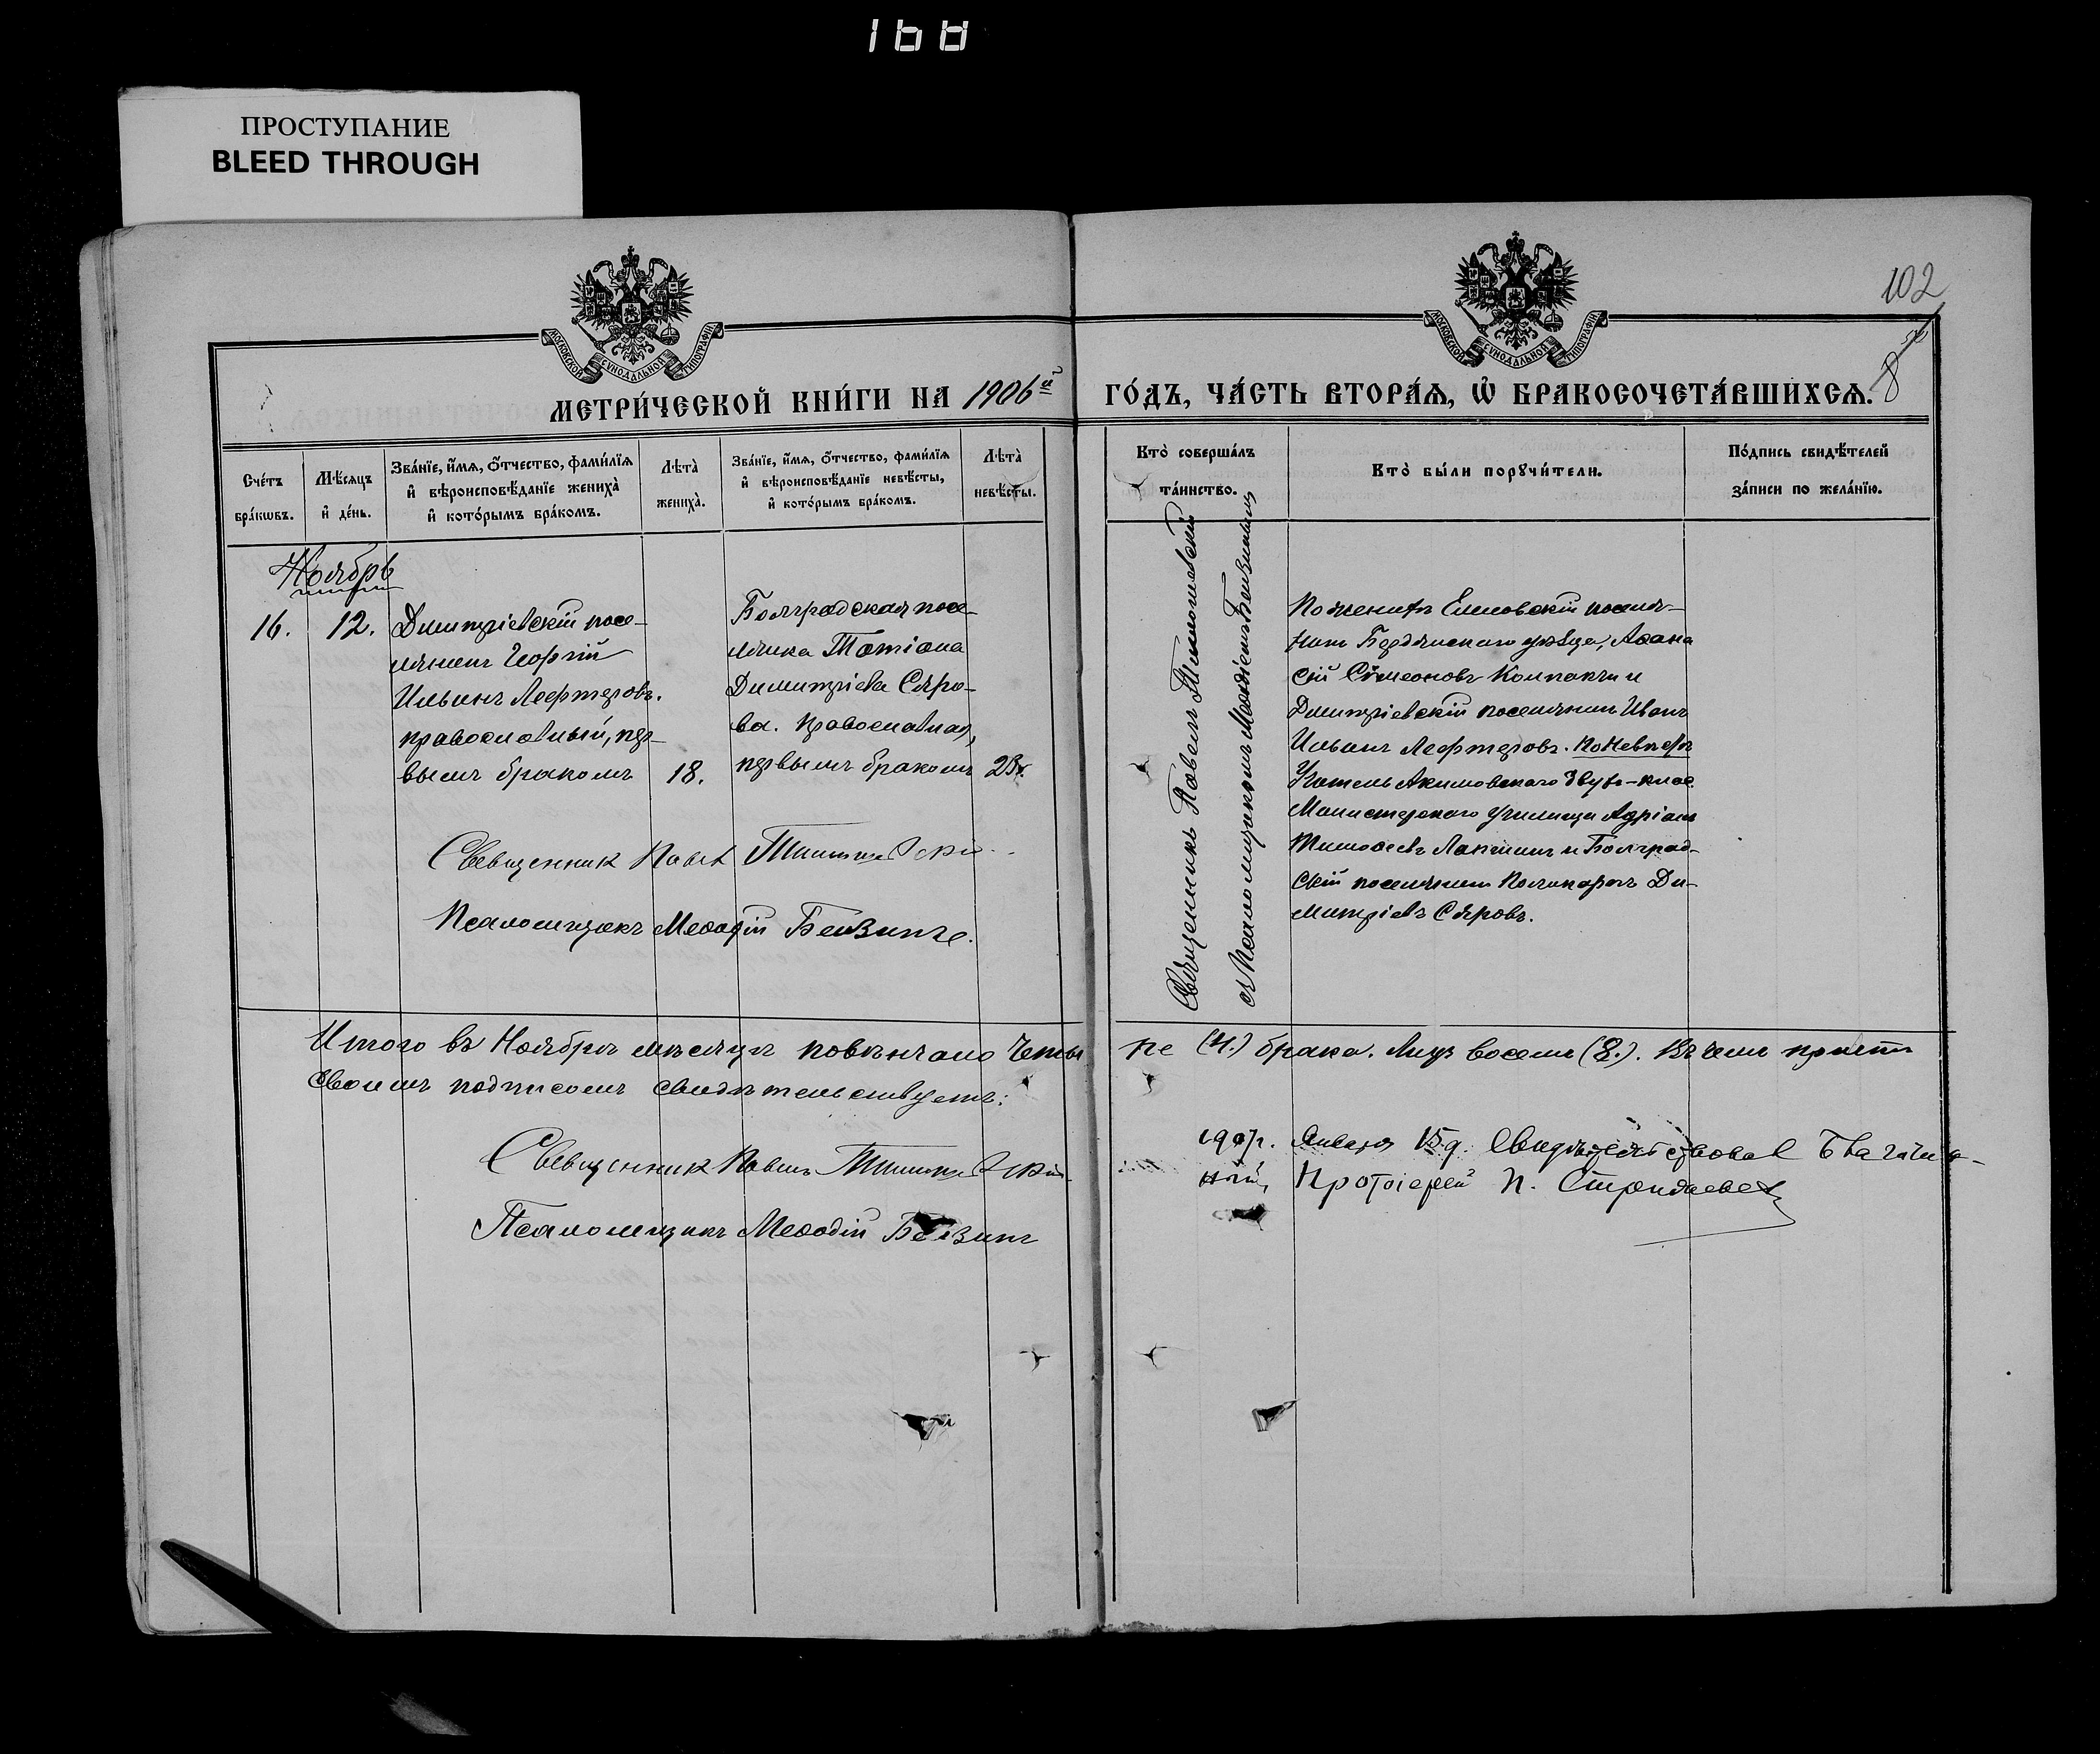 168
ПРОСТУПАНИЕ
BLEED THROUGH
102
МОСКОВСКОЙ СѴНОДАЛЬНОЙ ТИПОГРАФІИ
МОСКОВСКОЙ СѴНОДАЛЬНОЙ ТИПОГРАФІИ
МЕТРИ́ЧЕСКОЙ КНИ́ГИ НА 1906й ГО́ДЪ, ЧА́СТЬ ВТОРА́Ѧ, Ѽ БРАКОСОЧЕТА́ВШИХСѦ.
8
Сче́тъ бра́кѡвъ.
Мѣ́сяцъ и҆ де́нь.
Зва́нїе, и҆́мѧ, ѻ҆́тчество, фами́лїѧ
и҆ вѣроисповѣ́данїе жениха̀
и҆ кото́рымъ бра́комъ.
Лѣта̀ жениха̀.
Зва́нїе, и҆́мѧ, ѻ҆́тчество, фами́лїѧ
и҆ вѣроисповѣ́данїе невѣ́сты,
и҆ кото́рымъ бра́комъ.
Лѣта̀ невѣ́сты.
Кто̀ соверша́лъ
та́инство.
Кто̀ бы́ли порꙋчи́тели.
По́дпись свидѣ́телей
за́писи по жела́нїю.
Ноябрь
16.
12.
Димитріевскій посе-
лянинъ Георгій
Ильинъ Лефтеровъ.
православный, пер-
вымъ бракомъ
18.
Болградская посе-
лянка Татіана
Димитріева Сяро-
ва. Православная,
первымъ бракомъ
23.
Священникъ Павелъ
съ Псаломщикомъ Меѳодіемъ
По женихѣ Еленовскій поселя-
нинъ Бердянскаго уѣзда, Аѳана
сій Сѵмеоновъ Компакчи и
Димитріевскій поселянинъ Иванъ
Ильинъ Лефтеровъ. По невѣстѣ
Учитель Акимовскаго двух-клас.
Министерскаго училища Адріанъ
Тимоѳеевъ и Болград-
скій поселянинъ Поликарпъ Ди-
митріевъ Сяровъ.
Священник Павел
Псаломщикъ Меѳодій
Итого въ Ноябрѣ мѣсяцѣ повѣнчано Четы ре (4.) брака. Лицъ восемь (8.). Въ чемъ причтъ
своимъ подписомъ свидѣтельствуетъ:
Священник Павелъ
Псаломщикъ Меѳодій
1907г. Января 15 д. Свидѣтельствовал Благочин-
ный, Протоіерей П.